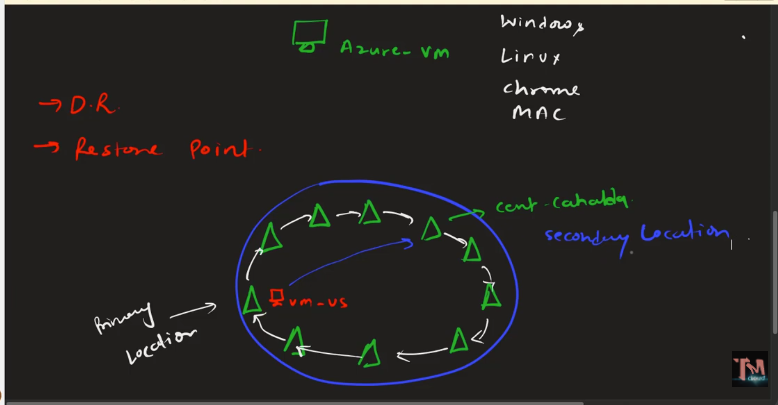 Windows
Azure-VM
Linux
chrome
MAC
→ D.R.
→ Restore Point.
cent-canada
secondary Location
vm-us
Primary
Location
TM